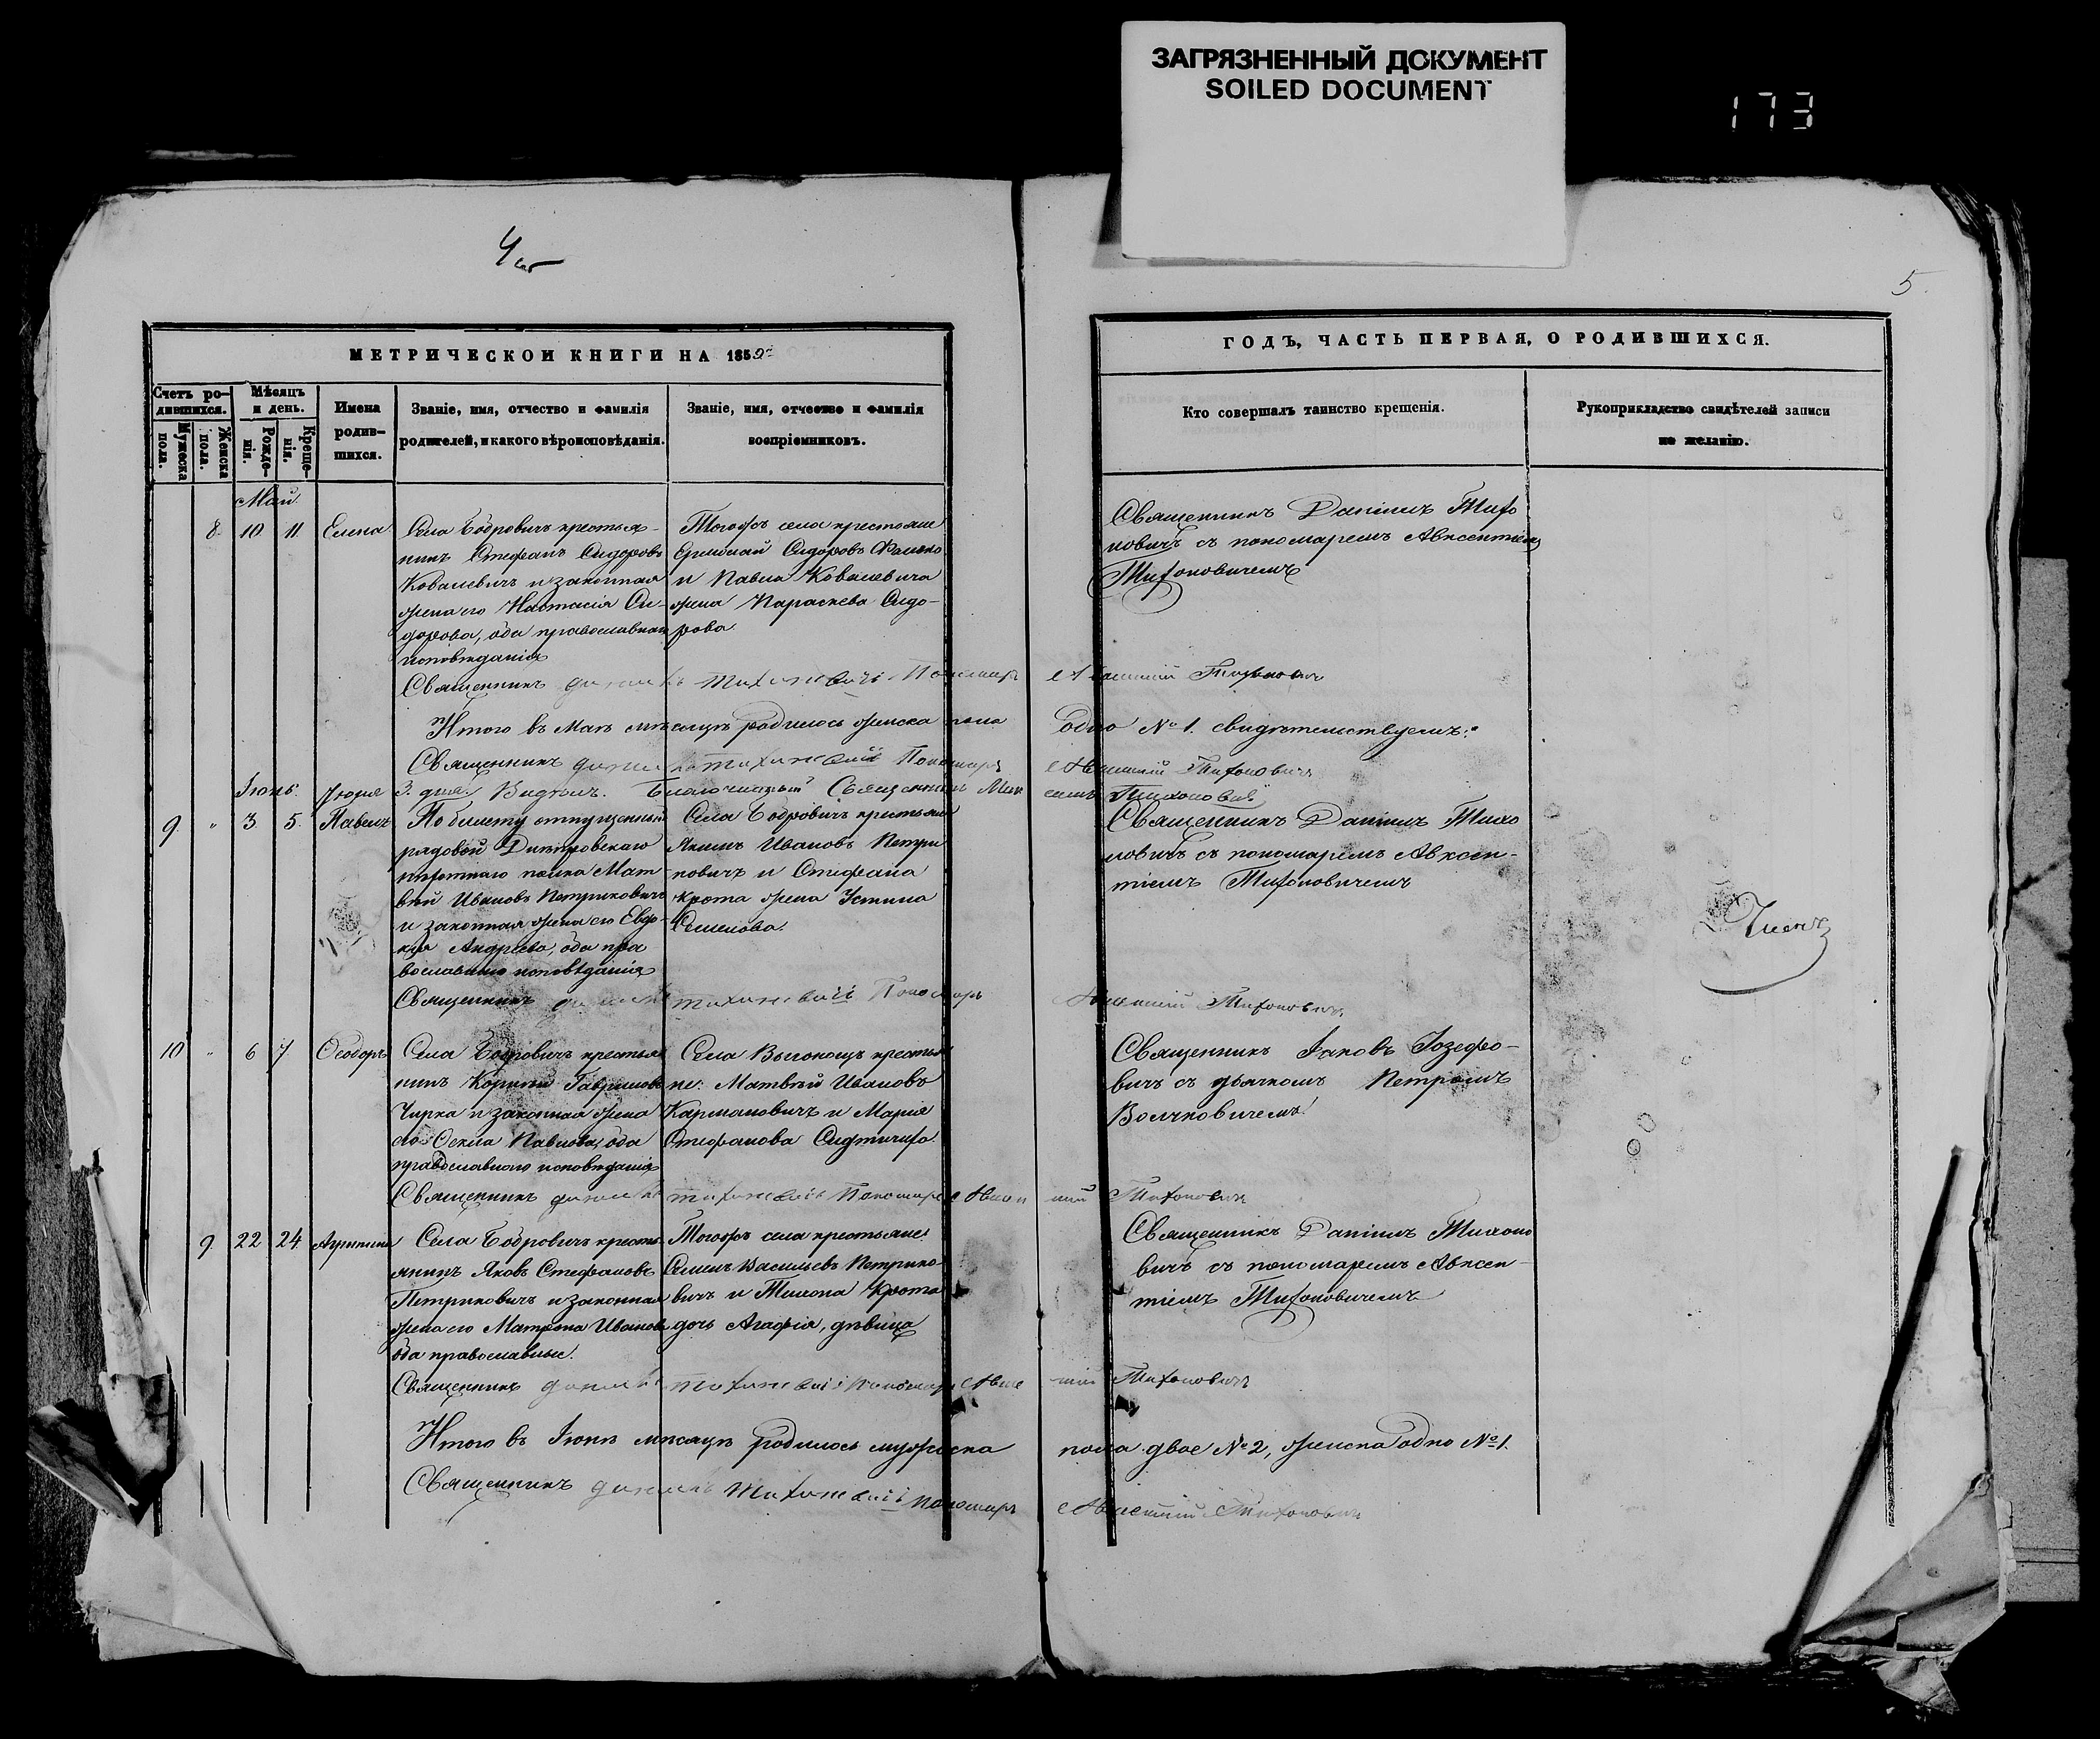 ЗАГРЯЗНЕННЫЙ ДОКУМЕНТ
SOILED DOCUMENT
173
4 об
5.
МЕТРИЧЕСКОЙ КНИГИ НА 1859
Счетъ родившихся.
Мѣсяцъ и день.
Имена родившихся.
Званіе, имя, отчество и фамилія родителей, и какого вѣроисповѣданія.
Званіе, имя, отчество и фамилія воспріемниковъ.
Мужеска пола.
Женска пола.
Рожденія.
Крещенія.
ГОДЪ, ЧАСТЬ ПЕРВАЯ, О РОДИВШИХСЯ.
Кто совершалъ таинство крещенія.
Рукоприкладство свидѣтелей записи по желанію.
Май.
8. 10 11 Елена.
Села Бобровичъ крестья-
нинъ Стефанъ Сидоровъ
Ковалевичъ и законная
жена его Настасія Си-
дорова, оба православнаго
исповѣданія
Тогожъ села крестьяне
Ермолай Сидоровъ
и Павла Ковалевича
жена Параскева Сидо-
рова
Священникъ Даніилъ Тихо
новичъ съ пономаремъ Авксентіемъ
Тихоновичемъ
Священникъ Даніилъ Тихоновичъ Пономарь Авксентій Тихоновичъ
Итого въ Маѣ мѣсяцѣ родилось женска пола одно № 1. свидѣтельствуемъ:
Священникъ Даніилъ Тихоновичъ Пономарь Авксентій Тихоновичъ
Іюнь.
Іюня 3. дня. Видѣлъ. Благочинный Священникъ
9. " 3. 5. Павелъ
По билету отпущенный
рядовой Днѣпровскаго
пѣхотнаго полка Мат-
вѣй Ивановъ Петриковичъ
и законная жена его Евдо-
кія Андреева, оба пра
вославнаго исповѣданія
Села Бобровичъ крестьяне
Якимъ Ивановъ Петри
ковичъ и Стефана
Крота жена Устина
Семенова.
Священникъ Даніилъ Тихо
новичъ съ пономаремъ Авксен-
тіемъ Тихоновичемъ
Священникъ Даніилъ Тихоновичъ Пономарь Авксентій Тихоновичъ
10 " 6 7. Ѳеодоръ
Села Бобровичъ крестья
нинъ Корнѣй Гавриловъ
Чирка и законная жена
его Ѳекла Павлова, оба
православнаго исповѣданія
Села Выгонощъ крестья
не: Матвѣй Ивановъ
Кармановичъ и Марія
Стефанова
Священникъ Іаковъ Іозефо-
вичъ съ дьячкомъ Петромъ
Волчковичемъ
Священникъ Даніилъ Тихоновичъ Пономарь Авксентій Тихоновичъ
9. 22 24 Агрипина
Села Бобровичъ кресть-
янинъ Яковъ Стефановъ
Петриковичъ и законная
жена его Матрона Иванова
оба православные.
Тогожъ села крестьяне
Семенъ Васильевъ Петрико-
вичъ и Тихона Крота
дочь Агафія, дѣвица
Священникъ Даніилъ Тихоно
вичъ съ пономаремъ Авксен-
тіемъ Тихоновичемъ
Священникъ Даніилъ Тихоновичъ Пономарь Авксентій Тихоновичъ
Итого въ Іюнѣ мѣсяцѣ родилось мужеска пола двое № 2, женска одно № 1.
Священникъ Даніилъ Тихоновичъ Пономарь Авксентій Тихоновичъ